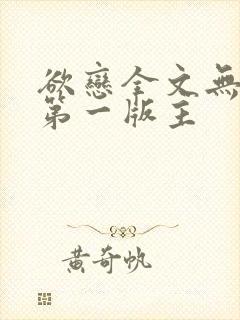 欲戀全文無
第一版主
黃奇帆